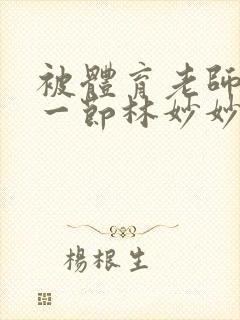 被體育老師
一節林妙妙
楊根生